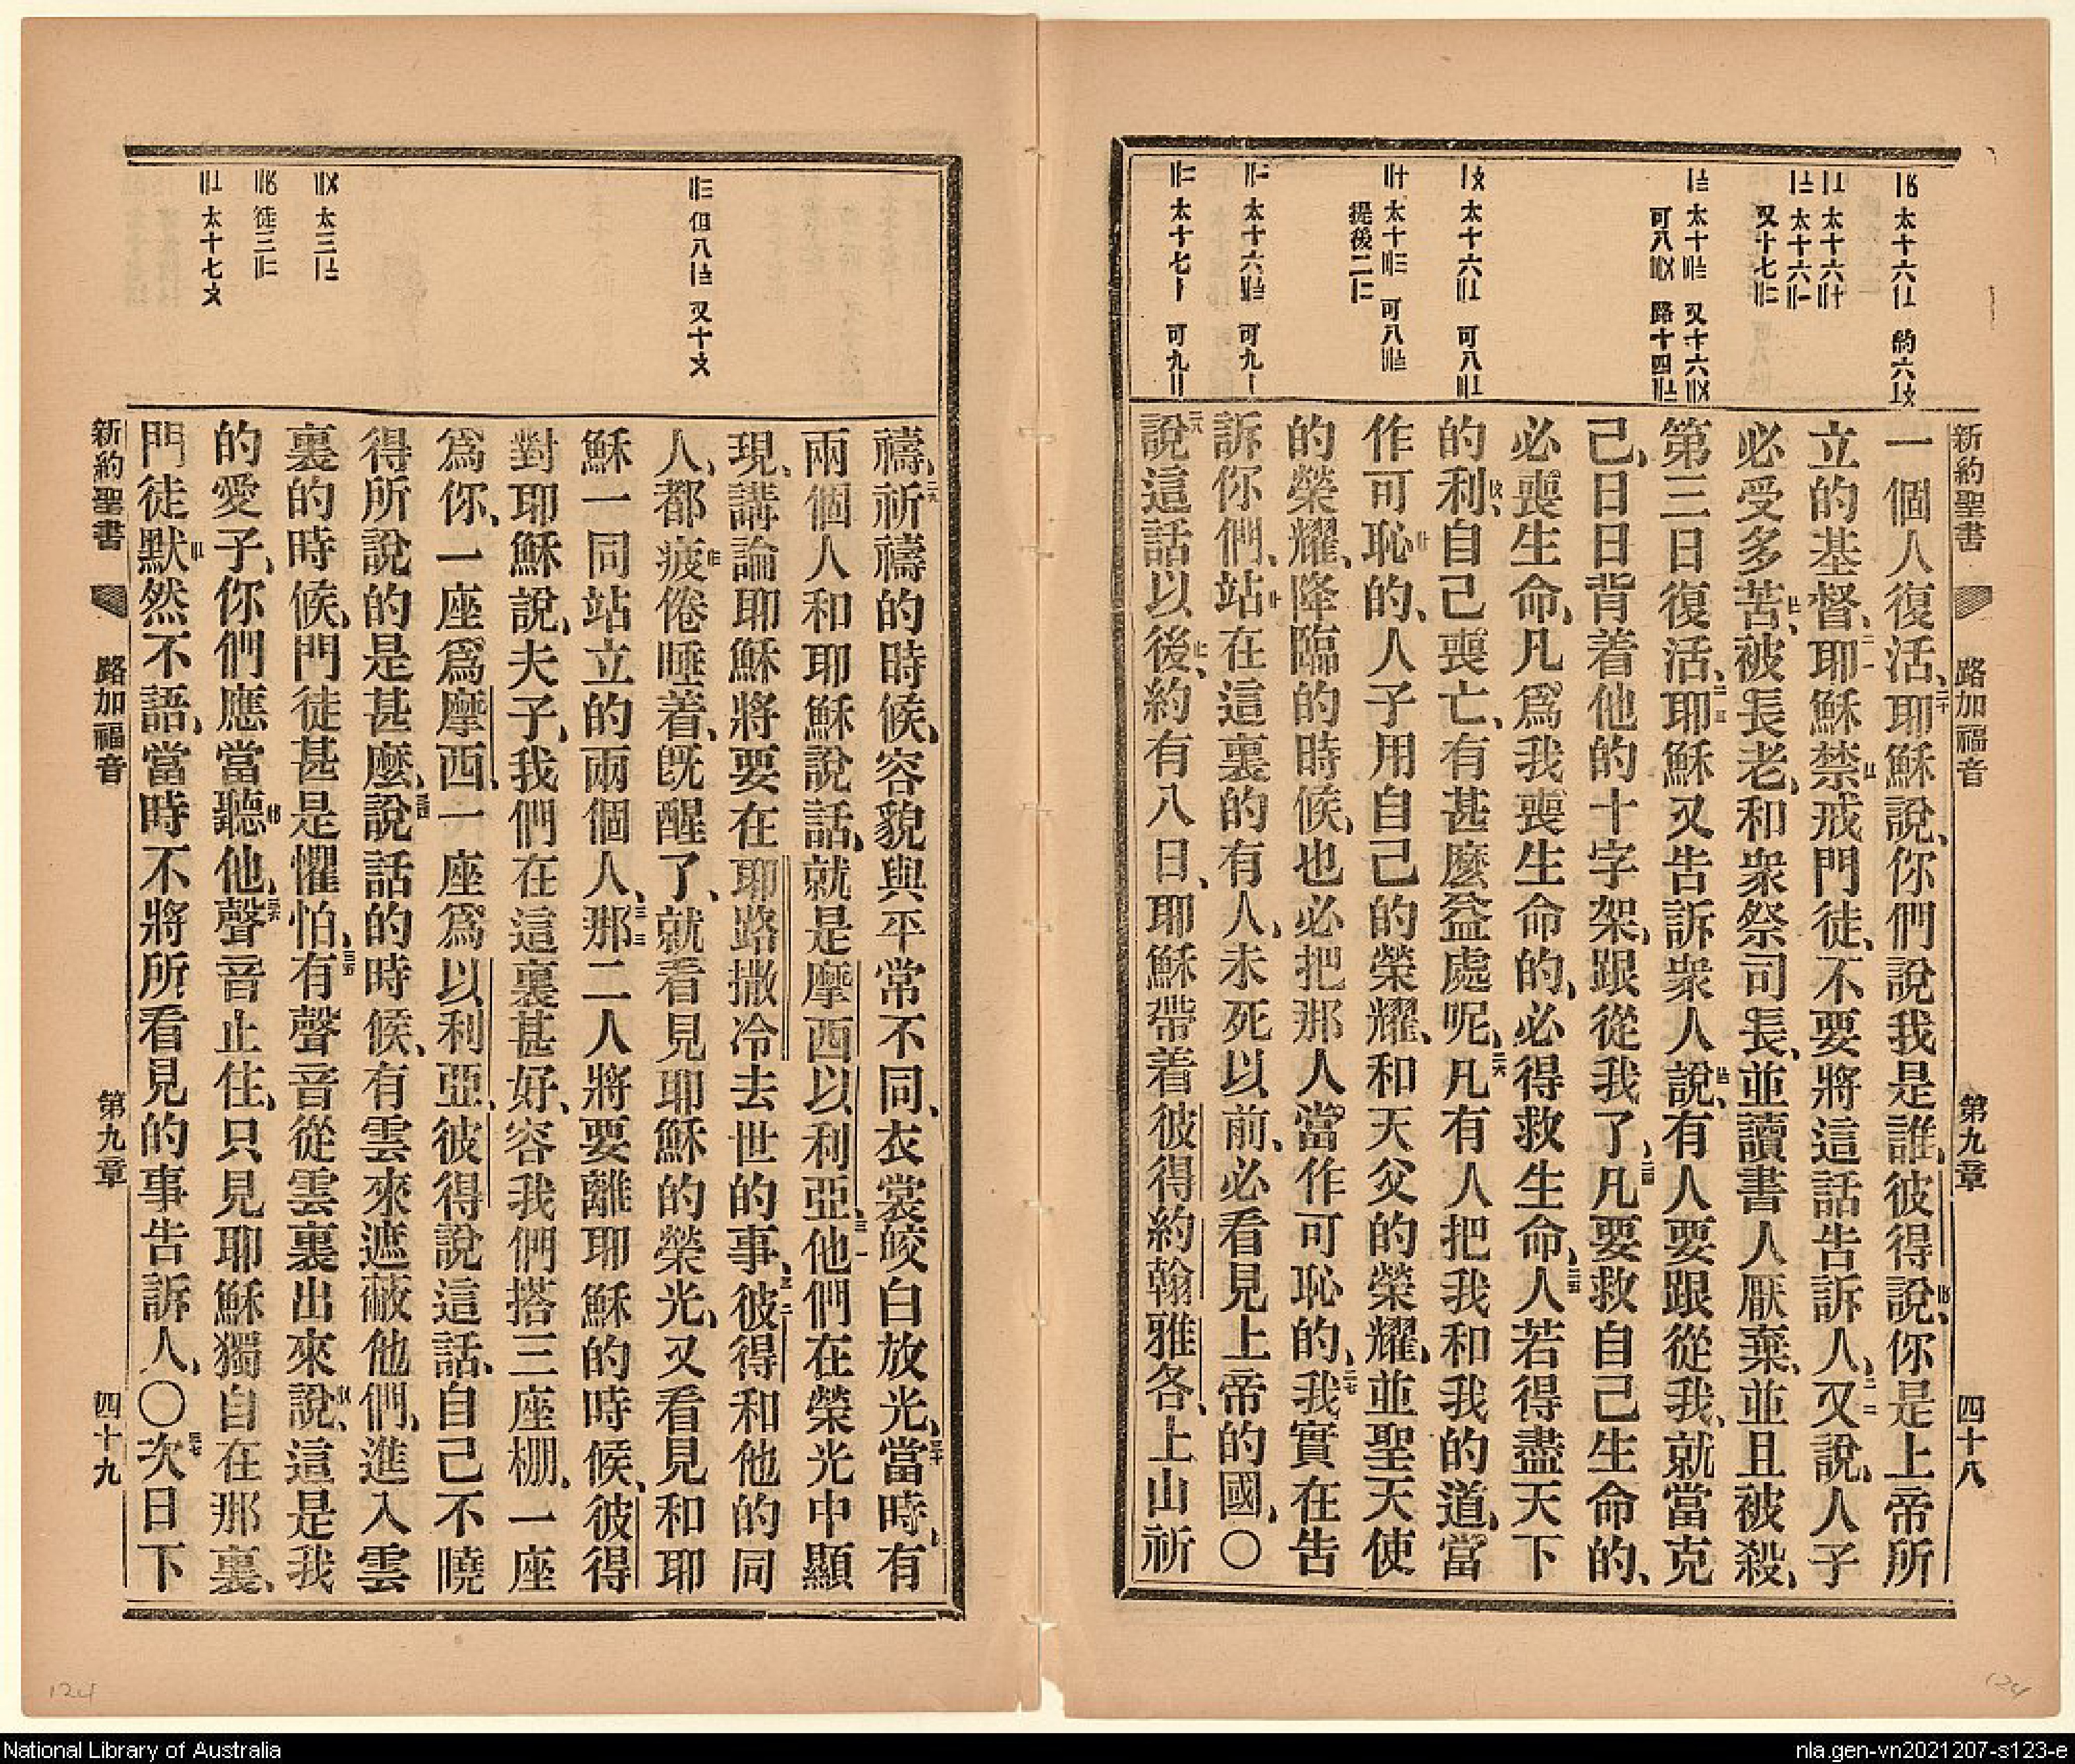 新約聖書 路加福音 第九章 四十八
一個人復活、二十耶穌說、你們說我是誰、彼得說、你是上帝所
立的基督、二一耶穌禁戒門徒、不要將這話告訴人、二二又說、人子
必受多苦、被長老、和衆祭司長、並讀書人厭棄、並且被殺、
第三日復活、二三耶穌又告訴衆人說、有人要跟從我、就當克
己、日日背着他的十字架、跟從我了、二四凡要救自己生命的、
必喪生命、凡爲我喪生命的、必得救生命、二五人若得盡天下
的利、自己喪亡、有甚麽益處呢、二六凡有人把我和我的道、當
作可恥的、人子用自己的榮耀、和天父的榮耀、並聖天使
的榮耀、降臨的時候、也必把那人當作可恥的、二七我實在告
訴你們、站在這裏的有人、未死以前、必看見上帝的國、〇
二八說這話以後、約有八日、耶穌帶着彼得約翰雅各、上山祈
禱、二九祈禱的時候、容貌與平常不同、衣裳皎白放光、三十當時、有
兩個人和耶穌說話、就是摩西以利亞、三一他們在榮光中顯
現、講論耶穌將要在耶路撒冷去世的事、三二彼得和他的同
人、都疲倦睡着、旣醒了、就看見耶穌的榮光、又看見和耶
穌一同站立的兩個人、三三那二人將要離耶穌的時候、彼得
對耶穌說、夫子、我們在這裏甚好、容我們搭三座棚、一座
爲你、一座爲摩西、一座爲以利亞、彼得說這話、自己不曉
得所說的是甚麽、三四說話的時候、有雲來遮蔽他們、進入雲
裏的時候、門徒甚是懼怕、三五有聲音從雲裏出來說、這是我
的愛子、你們應當聽他、三六聲音止住、只見耶穌獨自在那裏、
門徒默然不語、當時不將所看見的事告訴人、〇三七次日下
新約聖書 路加福音 第九章 四十九
124
124
National Library of Australia
nla.gen-vn2021207-s123-e